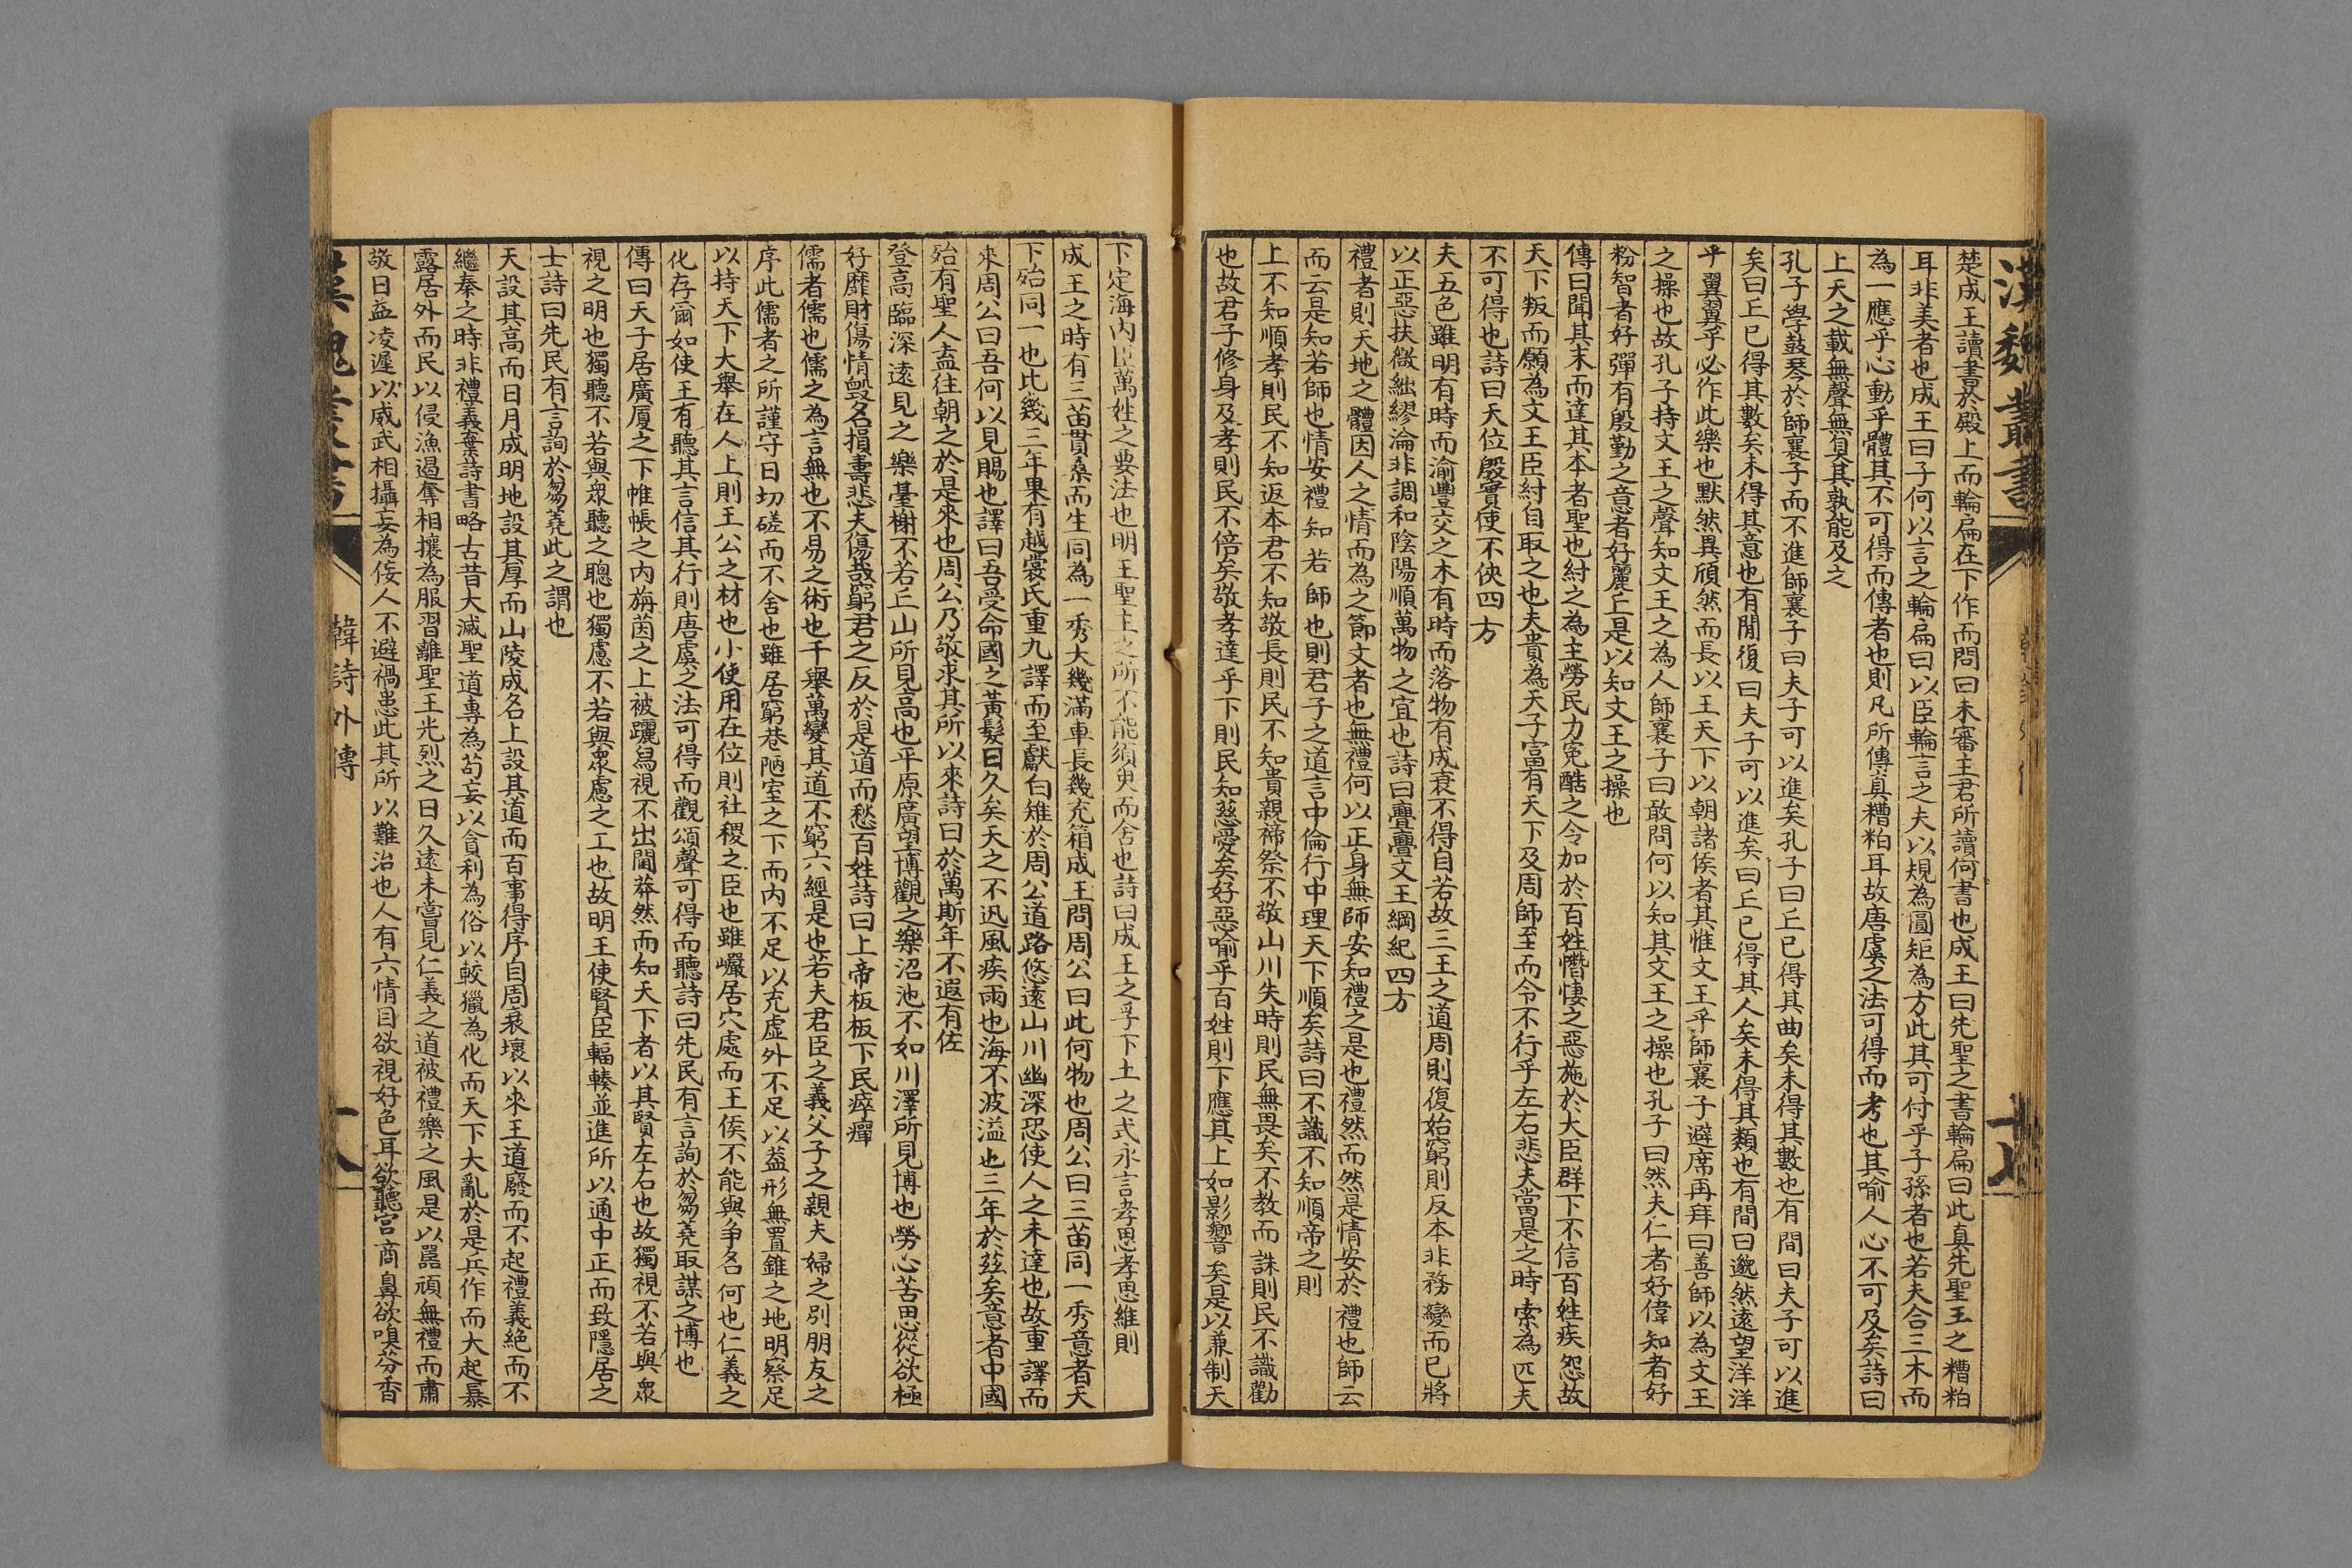 漢魏叢書
楚成王讀書於殿上而輪扁在下作而問曰未審主君所讀何書也成王曰先聖之書輪扁曰此真先聖王之糟粕
耳非美者也成王曰子何以言之輪扁曰以臣輪言之夫以規為圓矩為方此其可付乎子孫者也若夫合三木而
為一應乎心動乎體其不可得而傳者也則凡所傳真糟粕耳故唐虞之法可得而考也其喻人心不可及矣詩曰
上天之載無聲無臭其孰能及之
孔子學鼓琴於師襄子而不進師襄子曰夫子可以進矣孔子曰丘已得其曲矣未得其數也有間曰夫子可以進
矣曰丘已得其數矣未得其意也有閒復曰夫子可以進矣曰丘已得其人矣未得其類也有間曰邈然遠望洋洋
乎翼翼乎必作此樂也默然異頎然而長以王天下以朝諸侯者其惟文王乎師襄子避席再拜曰善師以為文王
之操也故孔子持文王之聲知文王之為人師襄子曰敢問何以知其文王之操也孔子曰然夫仁者好偉知者好
粉智者好彈有殷勤之意者好麗丘是以知文王之操也
傳曰聞其末而達其本者聖也紂之為主勞民力冤酷之令加於百姓憯悽之惡施於大臣群下不信百姓疾怨故
天下叛而願為文王臣紂自取之也夫貴為天子富有天下及周師至而令不行乎左右悲夫當是之時索為匹夫
不可得也詩曰天位殷實使不俠四方
夫五色雖明有時而渝豐交之木有時而落物有成衰不得自若故三王之道周則復始窮則反本非務變而已將
以正惡扶微絀繆淪非調和陰陽順萬物之宜也詩曰亹亹文王綱紀四方
禮者則天地之體因人之情而為之節文者也無禮何以正身無師安知禮之是也禮然而然是情安於禮也師云
而云是知若師也情安禮知若師也則君子之道言中倫行中理天下順矣詩曰不識不知順帝之則
上不知順孝則民不知返本君不知敬長則民不知貴親禘祭不敬山川失時則民無畏矣不教而誅則民不識勸
也故君子修身及孝則民不倍矣敬孝達乎下則民知慈愛矣好惡喻乎百姓則下應其上如影響矣是以兼制天
下定海內臣萬姓之要法也明王聖主之所不能須臾而舍也詩曰成王之孚下土之式永言孝思孝思維則
成王之時有三苗貫桑而生同為一秀大幾滿車長幾充箱成王問周公曰此何物也周公曰三苗同一秀意者天
下殆同一也比幾三年果有越裳氏重九譯而至獻白雉於周公道路悠遠山川幽深恐使人之未達也故重譯而
來周公曰吾何以見賜也譯曰吾受命國之黃髮曰久矣天之不迅風疾雨也海不波溢也三年於茲矣意者中國
殆有聖人盍往朝之於是來也周公乃敬求其所以來詩曰於萬斯年不遐有佐
登高臨深遠見之樂臺榭不若丘山所見高也平原廣望博觀之樂沼池不如川澤所見博也勞心苦思從欲極
好靡財傷情毀名損壽悲夫傷哉窮君之反於是道而愁百姓詩曰上帝板板下民瘁癉
儒者儒也儒之為言無也不易之術也千舉萬變其道不窮六經是也若夫君臣之義父子之親夫婦之別朋友之
序此儒者之所謹守日切磋而不舍也雖居窮巷陋室之下而內不足以充虛外不足以蓋形無置錐之地明察足
以持天下大舉在人上則王公之材也小使用在位則社稷之臣也雖巖居穴處而王侯不能與爭名何也仁義之
化存爾如使王有聽其言信其行則唐虞之法可得而觀頌聲可得而聽詩曰先民有言詢於芻蕘取謀之博也
傳曰天子居廣厦之下帷帳之內旃茵之上被躧舄視不出閫莽然而知天下者以其賢左右也故獨視不若與眾
視之明也獨聽不若與眾聽之聰也獨慮不若與眾慮之工也故明王使賢臣輻輳並進所以通中正而致隱居之
士詩曰先民有言詢於芻蕘此之謂也
天設其高而日月成明地設其厚而山陵成名上設其道而百事得序自周衰壞以來王道廢而不起禮義絕而不
繼秦之時非禮義棄詩書略古昔大滅聖道專為苟妄以貪利為俗以較獵為化而天下大亂於是兵作而大起暴
露居外而民以侵漁遏奪相攘為服習離聖王光烈之日久遠未嘗見仁義之道被禮樂之風是以嚚頑無禮而肅
敬日益凌遲以威武相攝妄為佞人不避禍患此其所以難治也人有六情目欲視好色耳欲聽宮商鼻欲嗅芬香
漢魏叢書
韓詩外傳
十八